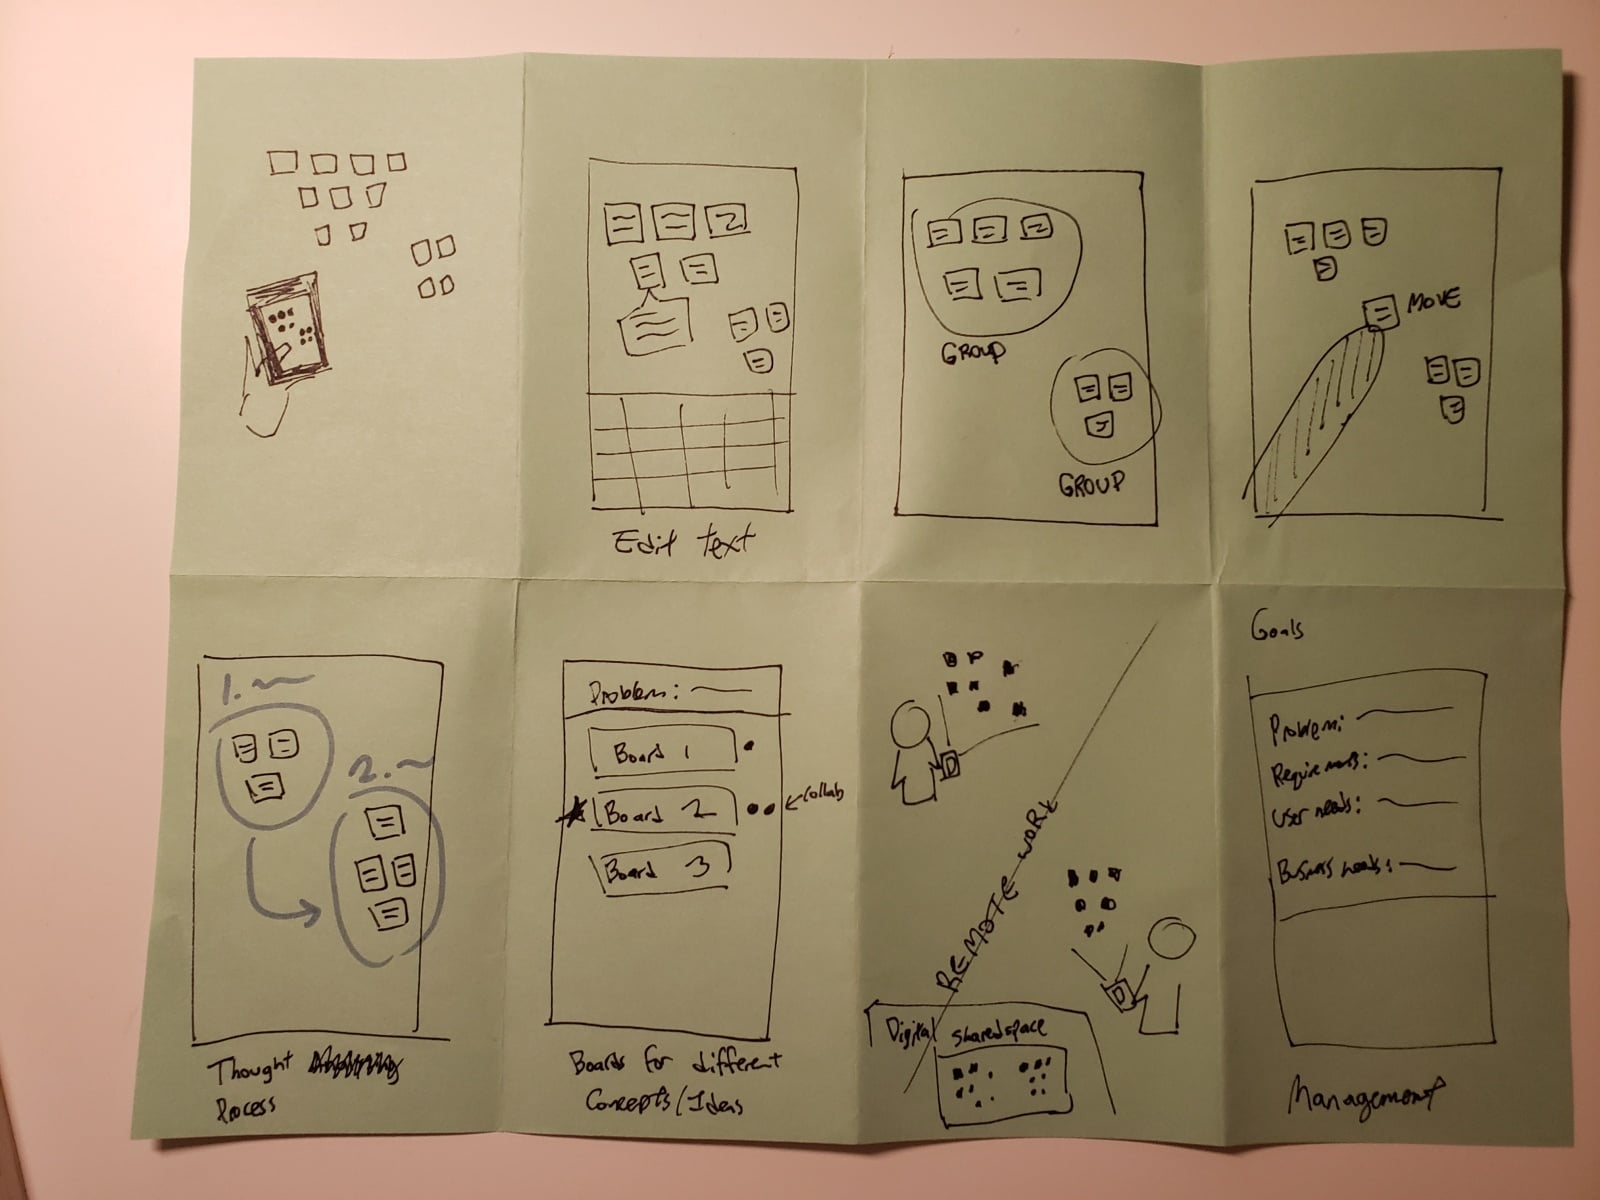 Edit text
GROUP
GROUP
MOVE
1.
2.
Thought
Process
Problem:
Board 1
Board 2
collab
Board 3
Boards for different
Concepts/Ideas
REMOTE WORK
Digital shared space
Goals
Problem:
Requirements:
User needs:
Business needs:
Management